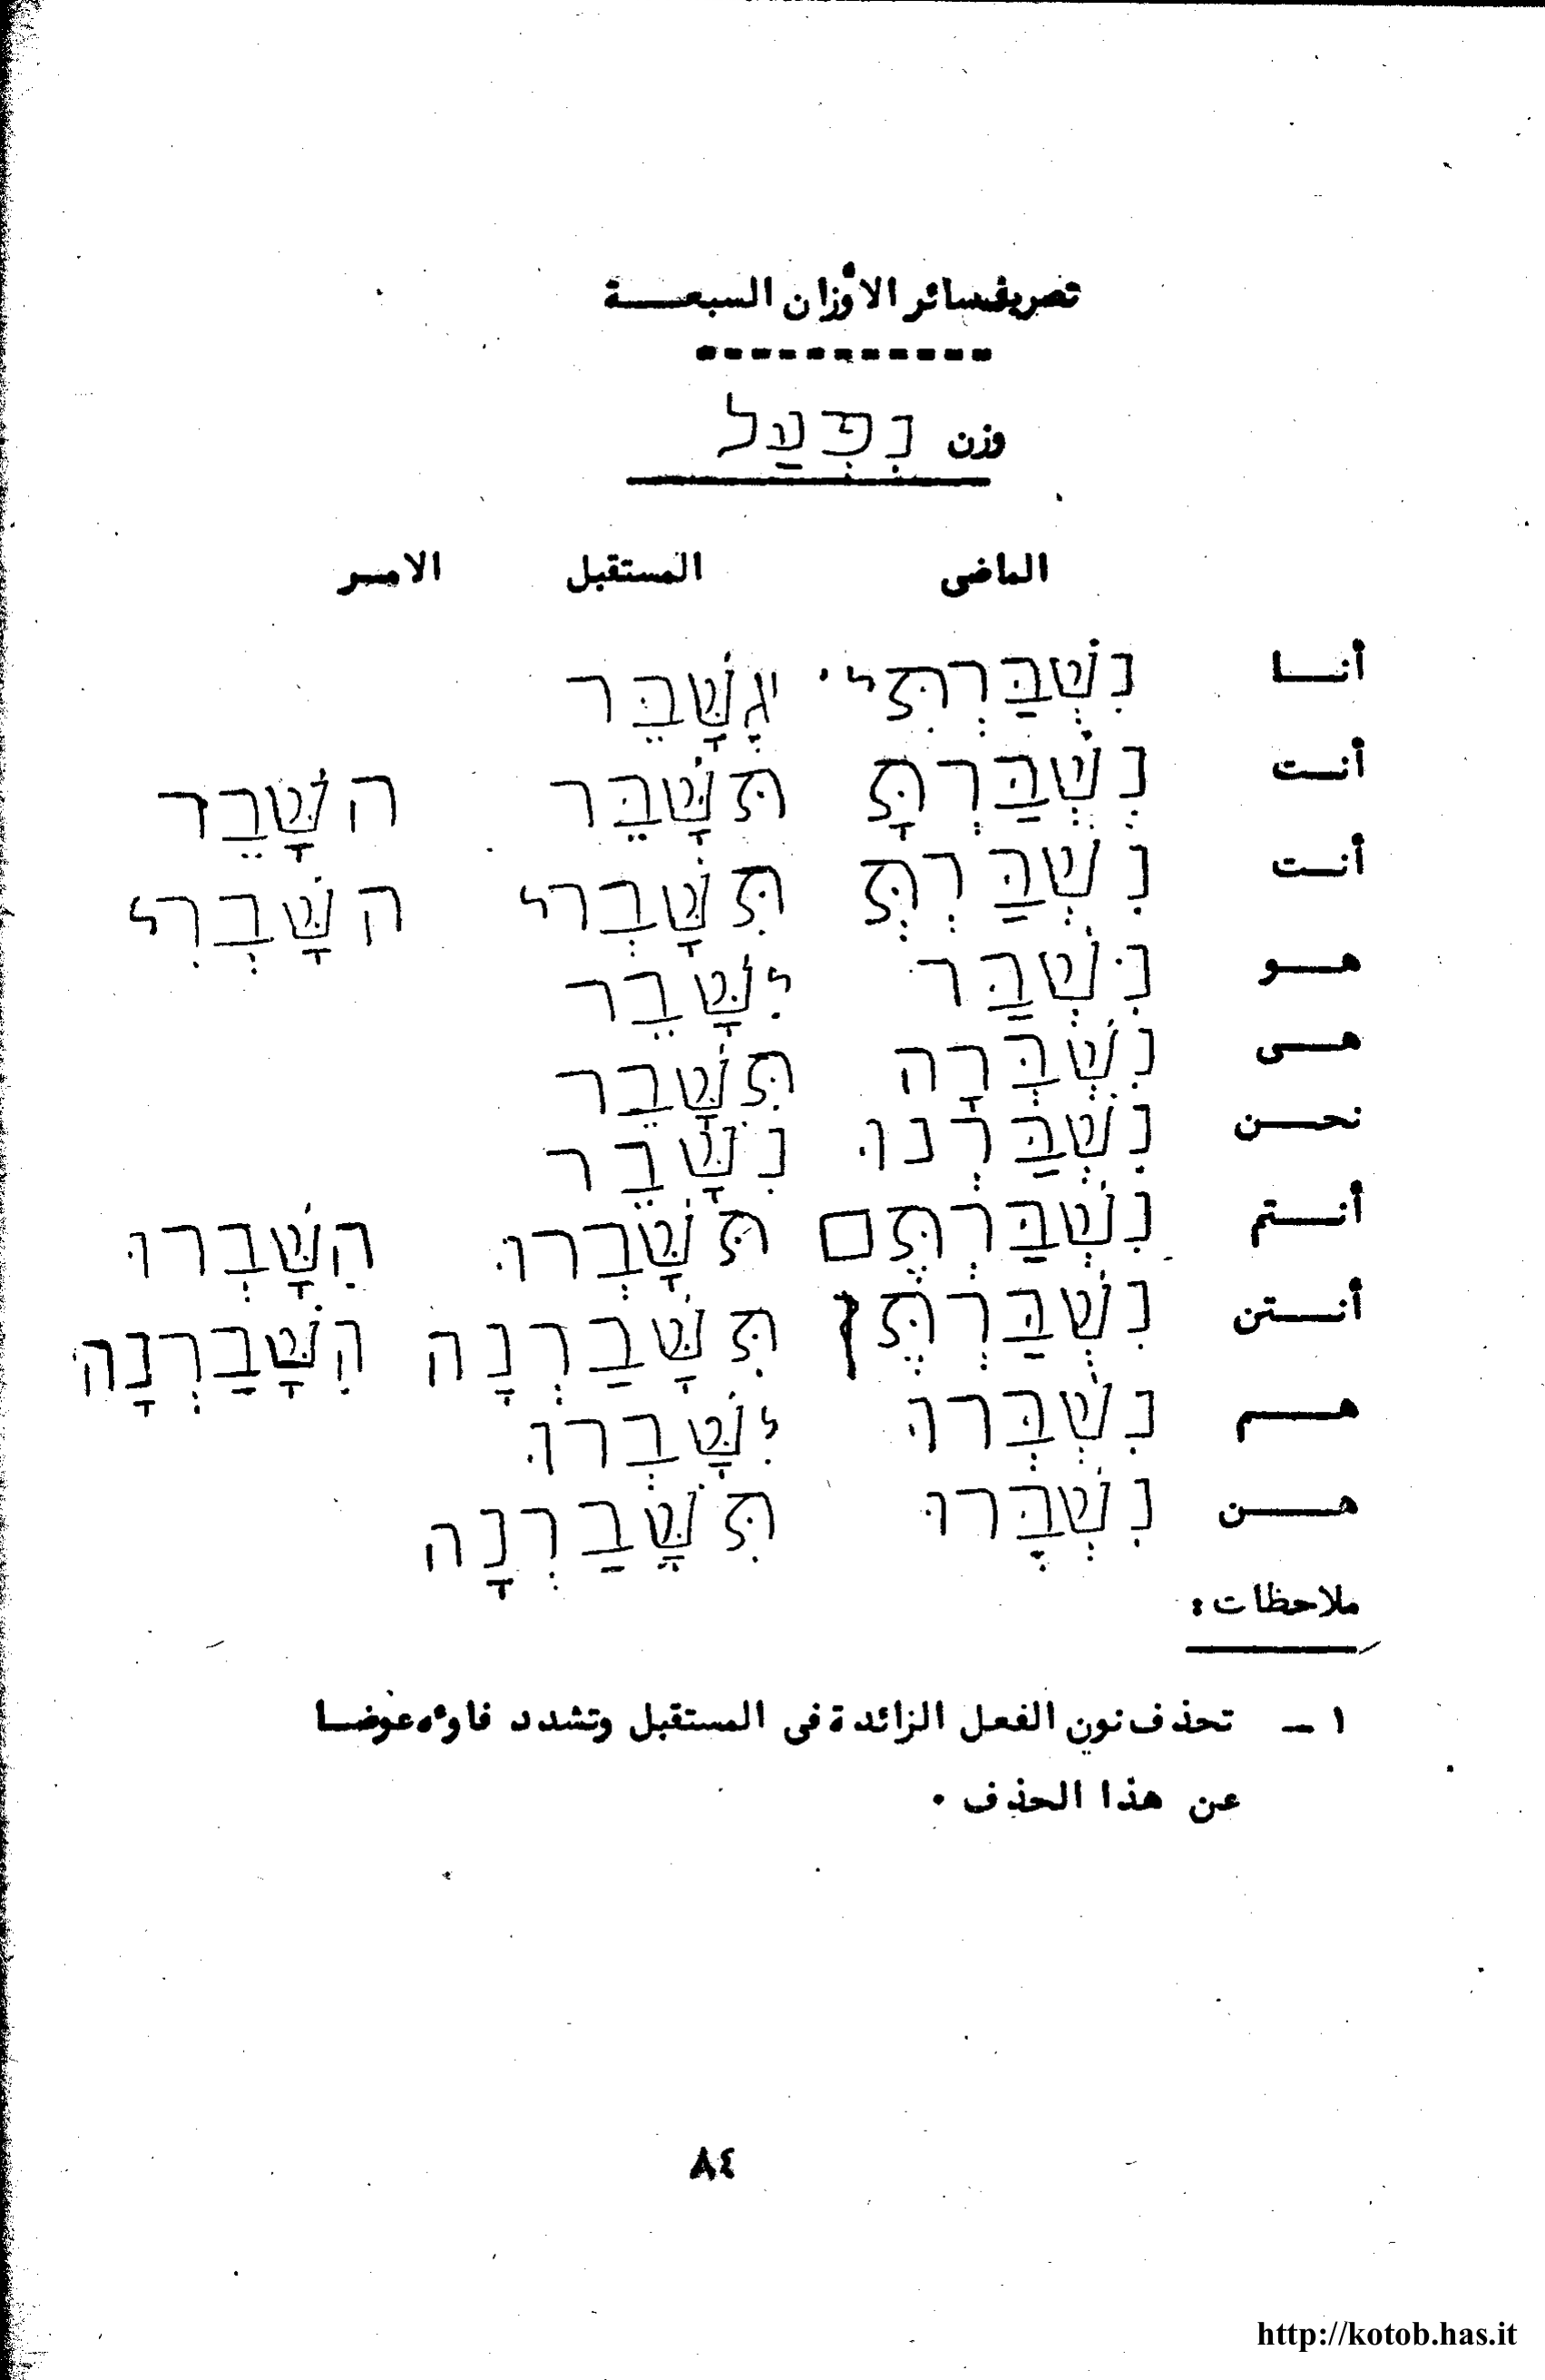 تصريف سائر الأوزان السبعـــة
وزن נִפְעַל
الماضى المستقبل الامــر
أنــا נִשְׁבַּרְתִּי אֶשָּׁבֵר
أنــت נִשְׁבַּרְתָּ תִּשָּׁבֵר השָּׁבֵר
أنــت נִשְׁבַּרְתְּ תִּשָּׁבְרי השָּׁבְרִי
هــو נִשְׁבַּר יִשָּׁבֵר
هــى נִשְׁבְּרָה תִּשָּׁבֵר
نحــن נִשְׁבַּרְנוּ נִשָּׁבֵר
أنــتم נִשְׁבַּרְתֶּם תּשָּׁבְרוּ הִשָּׁבְרוּ
أنــتن נִשְׁבַּרְתֶּן תִּשָּׁבַרְנָה הִשָּׁבַרְנָה
هــم נִשְׁבְּרוּ יִשָּׁבְרוּ
هــن נִשְׁבְּרוּ תִּשָּׁבַרְנָה
ملاحظات :
١ ــ تحذف نون الفعل الزائدة فى المستقبل وتشدد فاؤه عوضــا
عن هذا الحذف .
٨٤
http://kotob.has.it